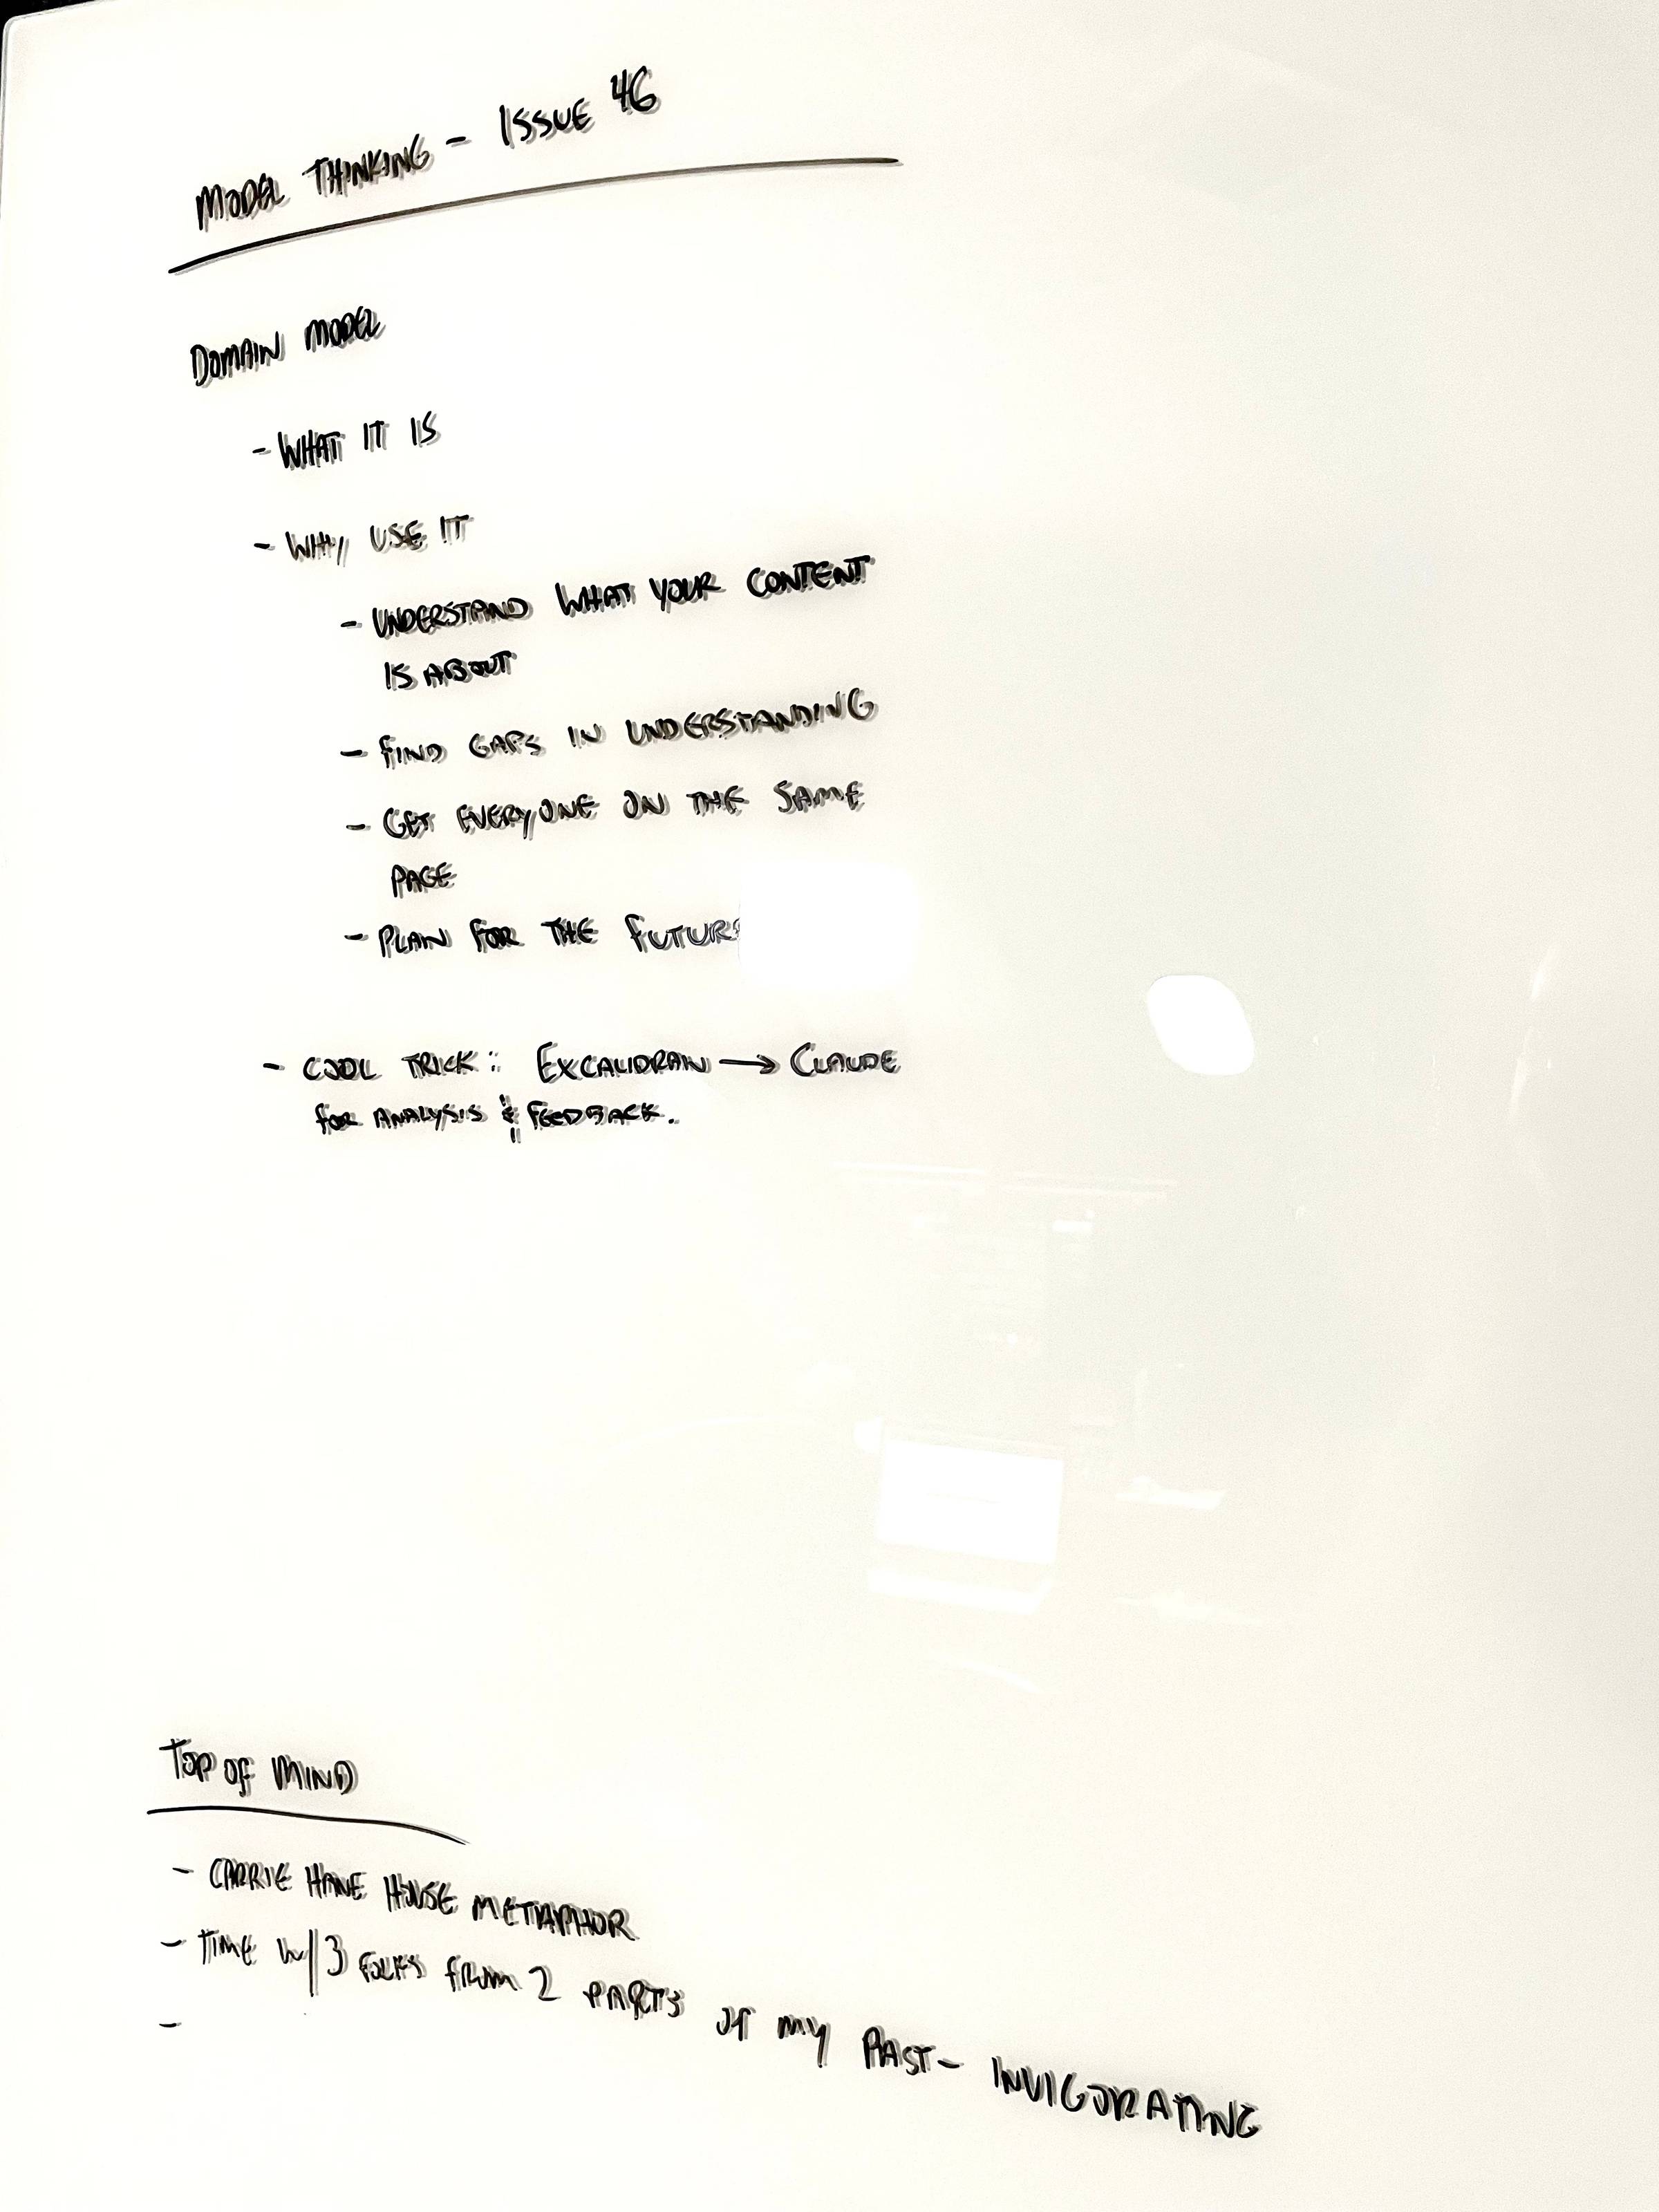 MODEL THINKING - ISSUE 46
DOMAIN MODEL
- WHAT IT IS
- WHY USE IT
- UNDERSTAND WHAT YOUR CONTENT
IS ABOUT
- FIND GAPS IN UNDERSTANDING
- GET EVERYONE ON THE SAME
PAGE
- PLAN FOR THE FUTURE
- COOL TRICK: EXCALIDRAW → CLAUDE
FOR ANALYSIS & FEEDBACK.
TOP OF MIND
- CARRIE HANE HOUSE METAPHOR
- TIME W/ 3 FOLKS FROM 2 PARTS OF MY PAST - INVIGORATING
-